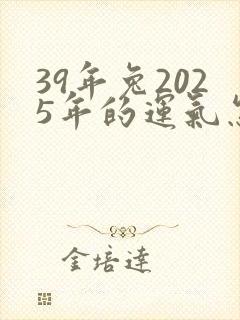 39年兔202
5年的運氣
金培達